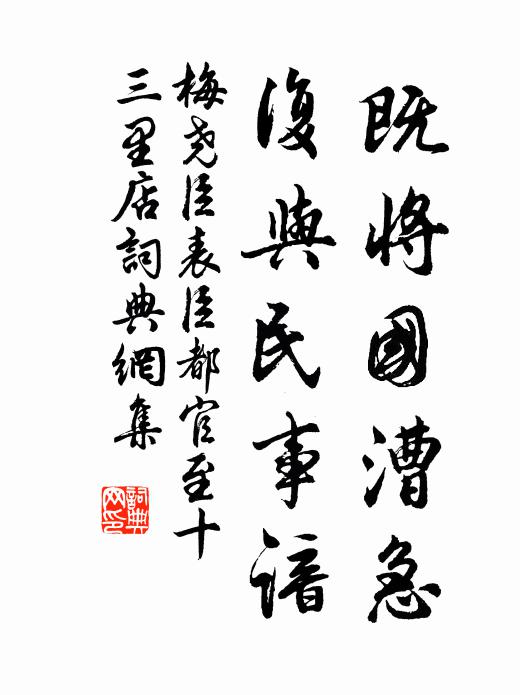 既將國漕急
復與民事諳
梅堯臣表臣都官至十
三里店詞典網集
詞典
网印